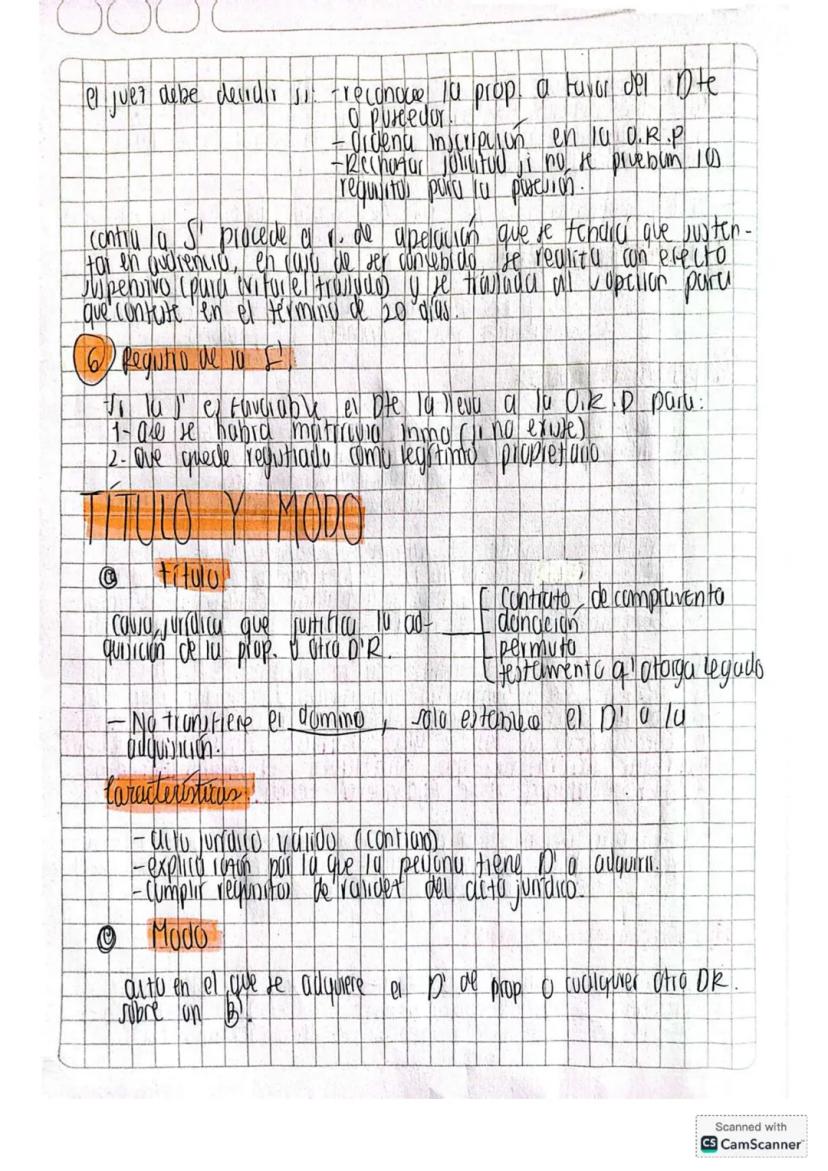 el juez debe decidir si: -reconoce la prop. a favor del Dte
o poseedor.
- Ordena inscripción en la O.R.P
- Rechazar solicitud si no se prueban los
requisitos para la posesión.
contra la S' procede el r. de apelación que se tendrá que susten-
tar en audiencia, en caso de ser concebido se realiza con efecto
suspensivo (para evitar el traslado) y se traslada al para
que conteste en el término de 20 días.
6 Registro de la S'.
Si la S' es favorable el Dte la lleva a la O.R.P para:
1- Que se habra matrícula inmo (si no existe)
2- Que quede registrado como legítimo propietario
TÍTULO Y MODO
título
causa jurídica que justifica la ad-
quisición de la prop. u otro D'R.
contrato de compraventa
donación
permuta
testamento q' otorga legado
- No transfiere el dominio, solo establece el D' a la
adquisición.
Características.
- acto jurídico válido (contrato)
- explica razón por la que la persona tiene D' a adquirir.
- cumplir requisitos de validez del acto jurídico.
Modo
acto en el que se adquiere el D' de prop o cualquier otro DR.
sobre un B'.
Scanned with
CS CamScanner